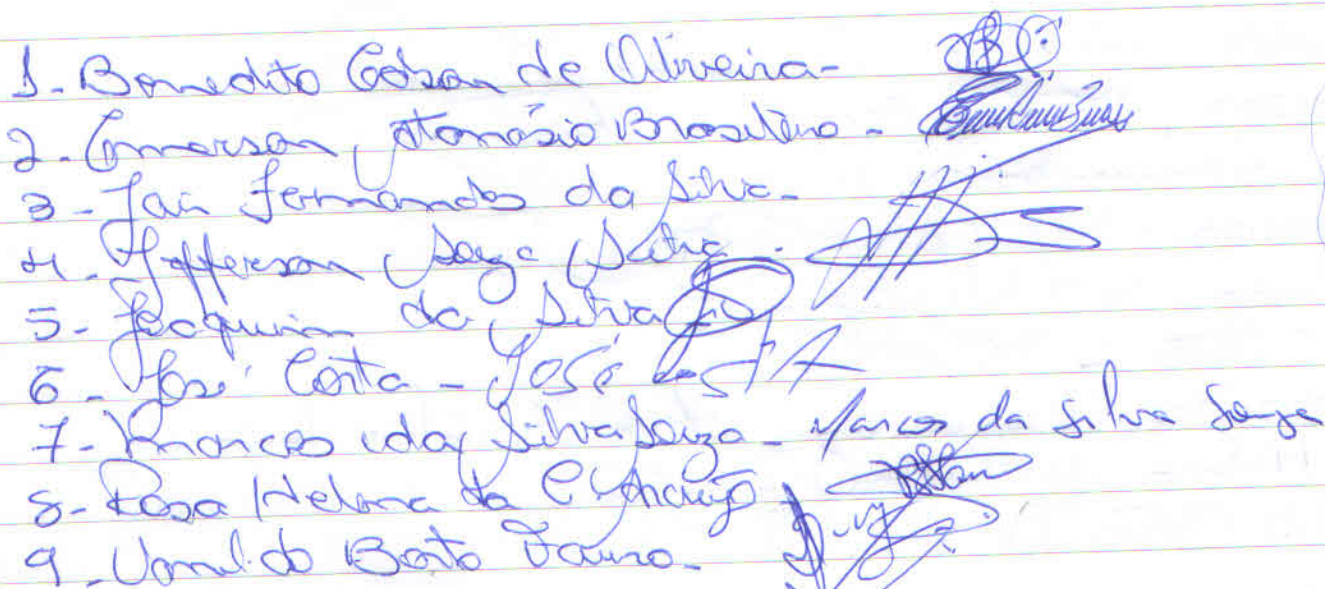 1- Benedito Edson de Oliveira-
2- Emerson Atanásio Brasileiro-
3- Jair Fernandes da Silva-
4- Jefferson Souza Silva-
5- Joaquim da Silva
6- José Costa - José Costa
7- Marcos da Silva Souza - Marcos da Silva Souza
8- Rosa Helena da C. Araújo
9- Bento